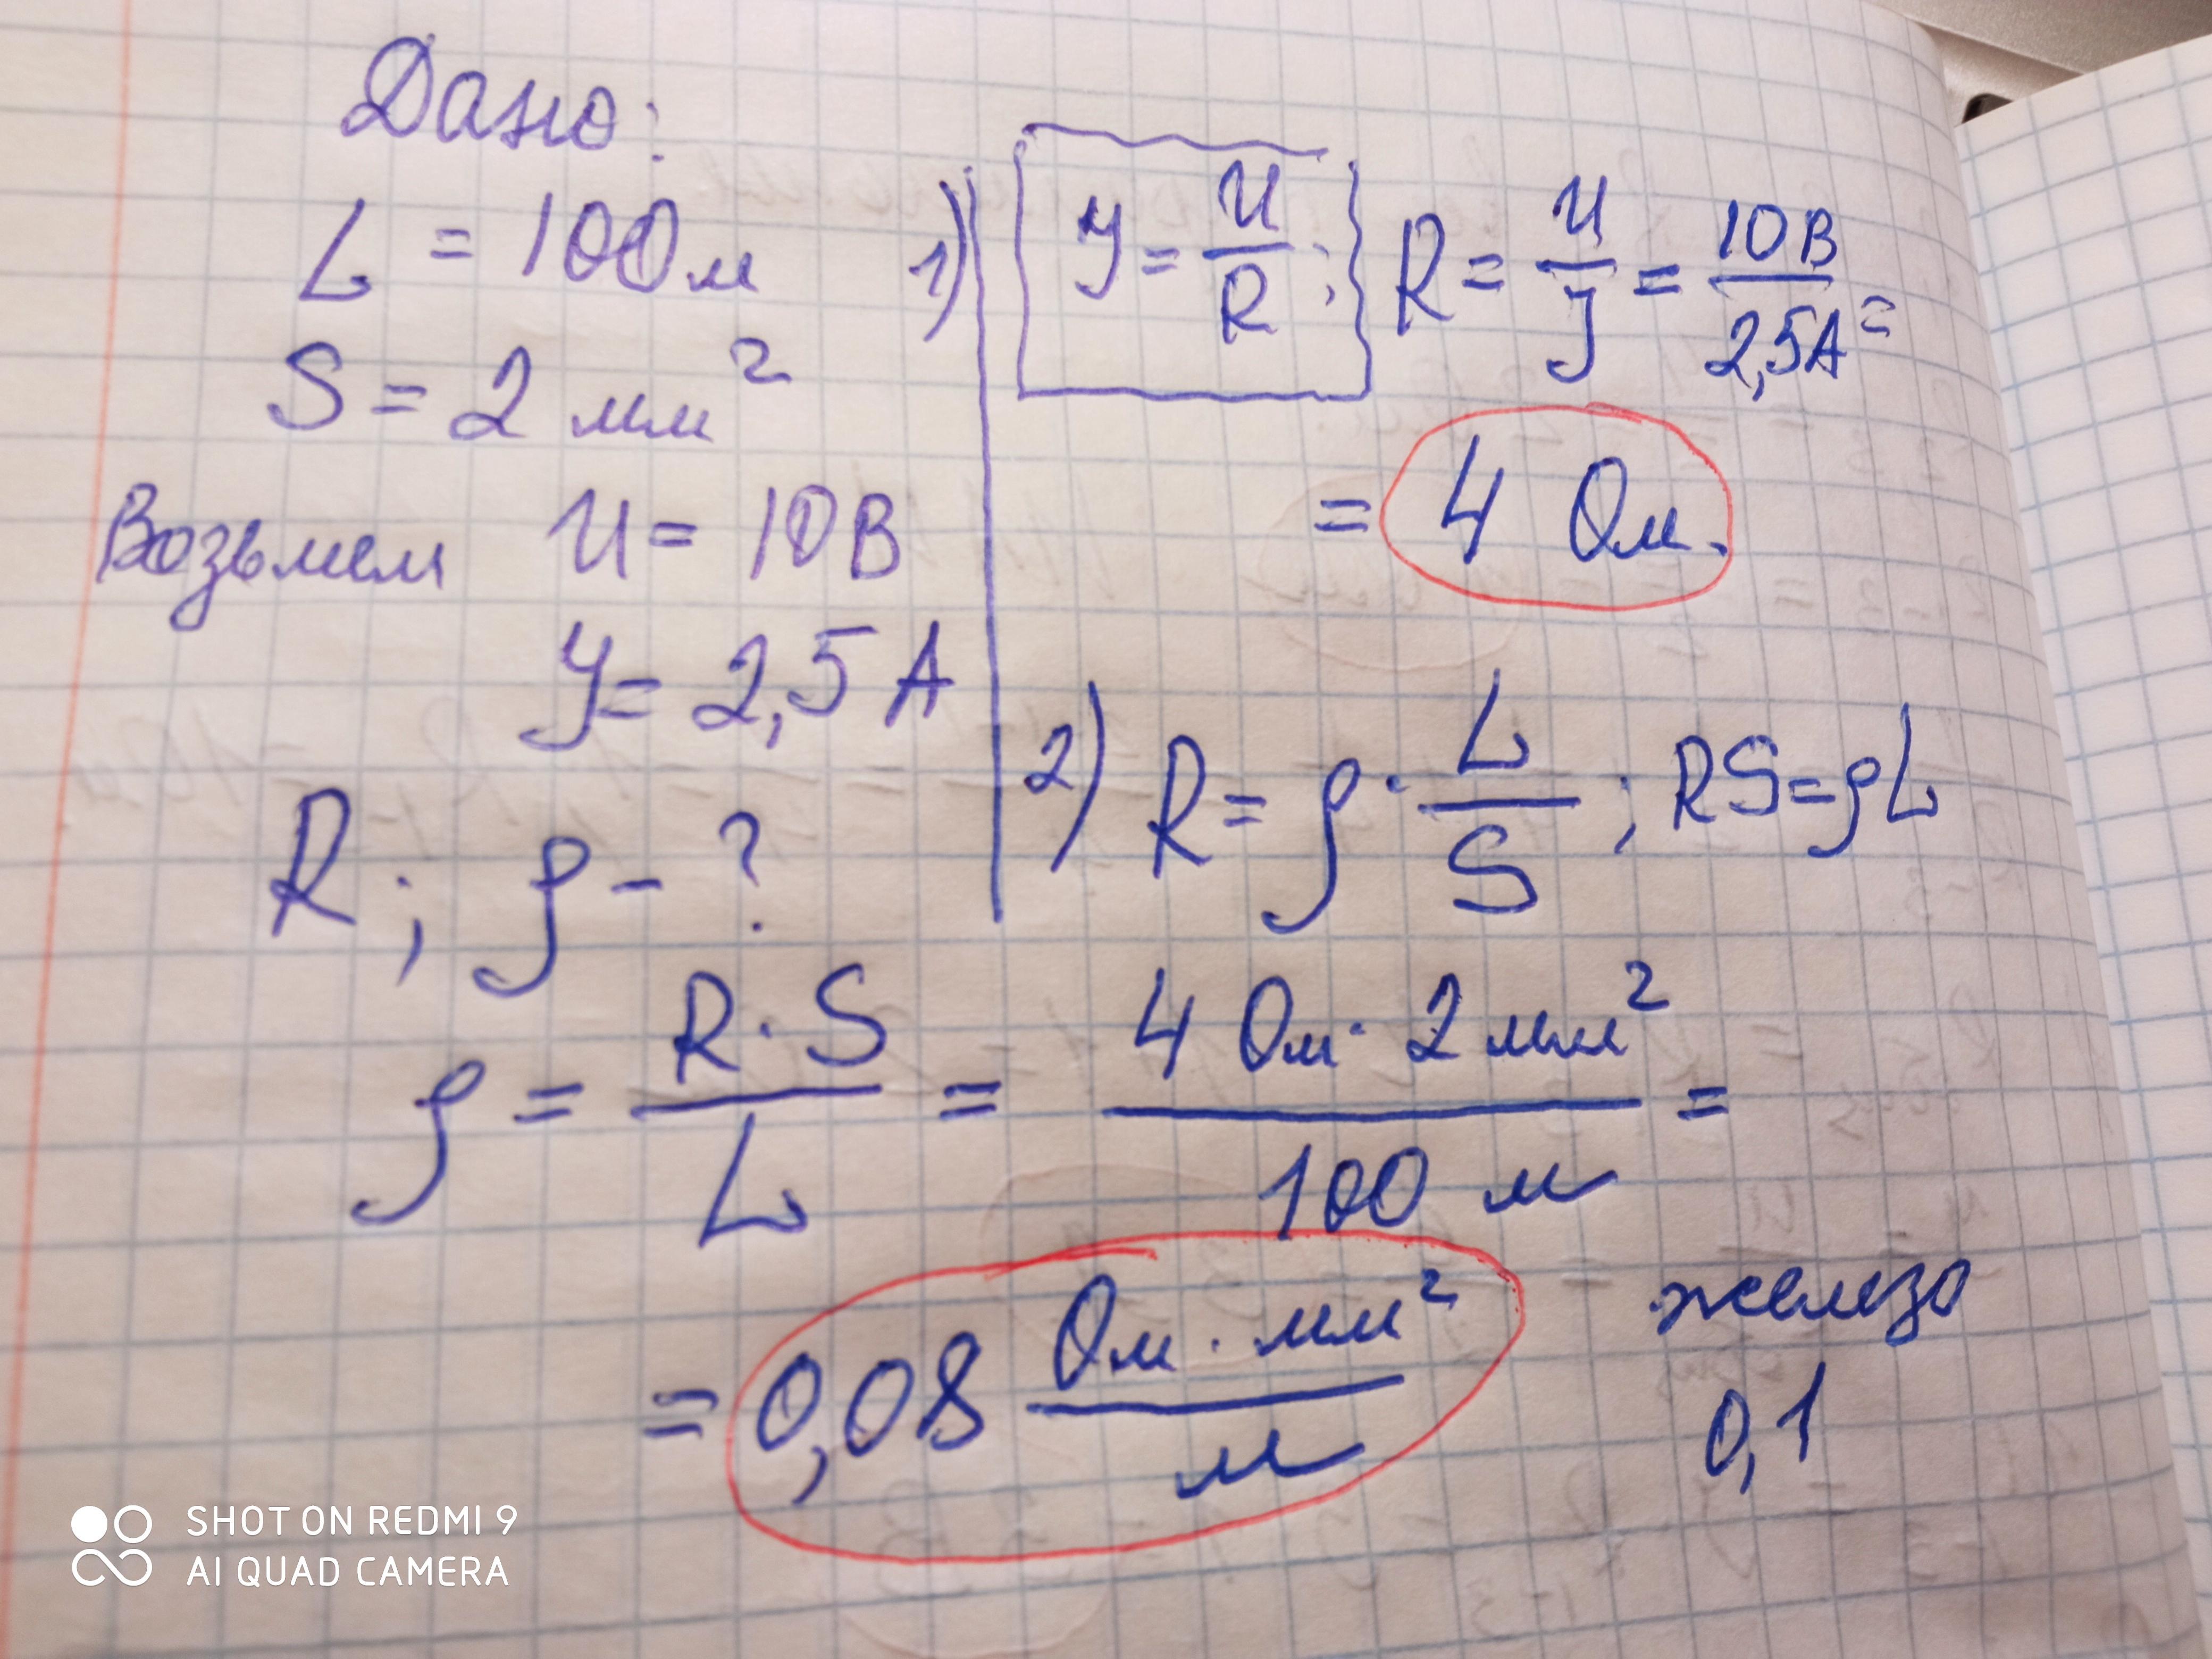 Дано:
L = 100 м
S = 2 мм²
Возьмем U = 10 В
У = 2,5 А
R; ρ - ?
1) У = U/R; R = U/J = 10В/2,5А =
= 4 Ом.
2) R = ρ · L/S; RS = ρL
ρ = R·S/L = 4 Ом · 2 мм²/100 м =
= 0,08 Ом · мм²/м
железо
0,1
SHOT ON REDMI 9
AI QUAD CAMERA